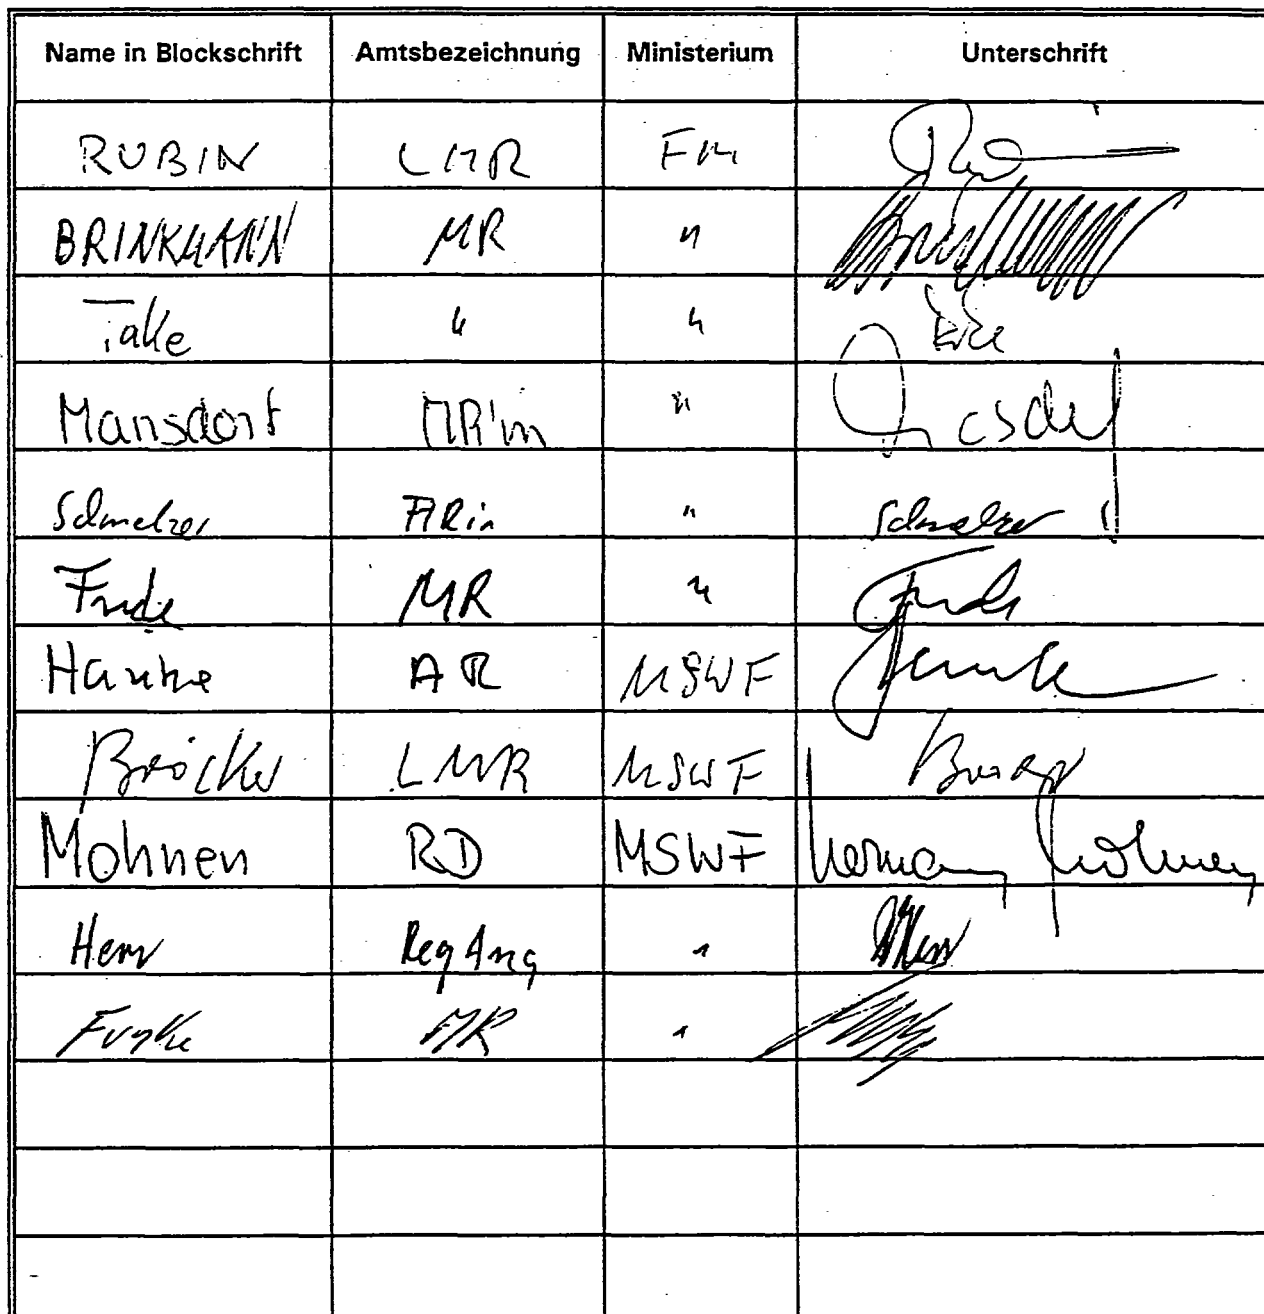 Name in Blockschrift Amtsbezeichnung Ministerium Unterschrift
RUBIN LMR FM
BRINKMANN MR "
Take " "
Mansdorf MR'in "
Schmelzer "  Schmelzer
MR "
Hanke AR MSWF
LMR MSWF
Mohnen RD MSWF Hermann Mohnen
Herr RegAng "
Funke MR "